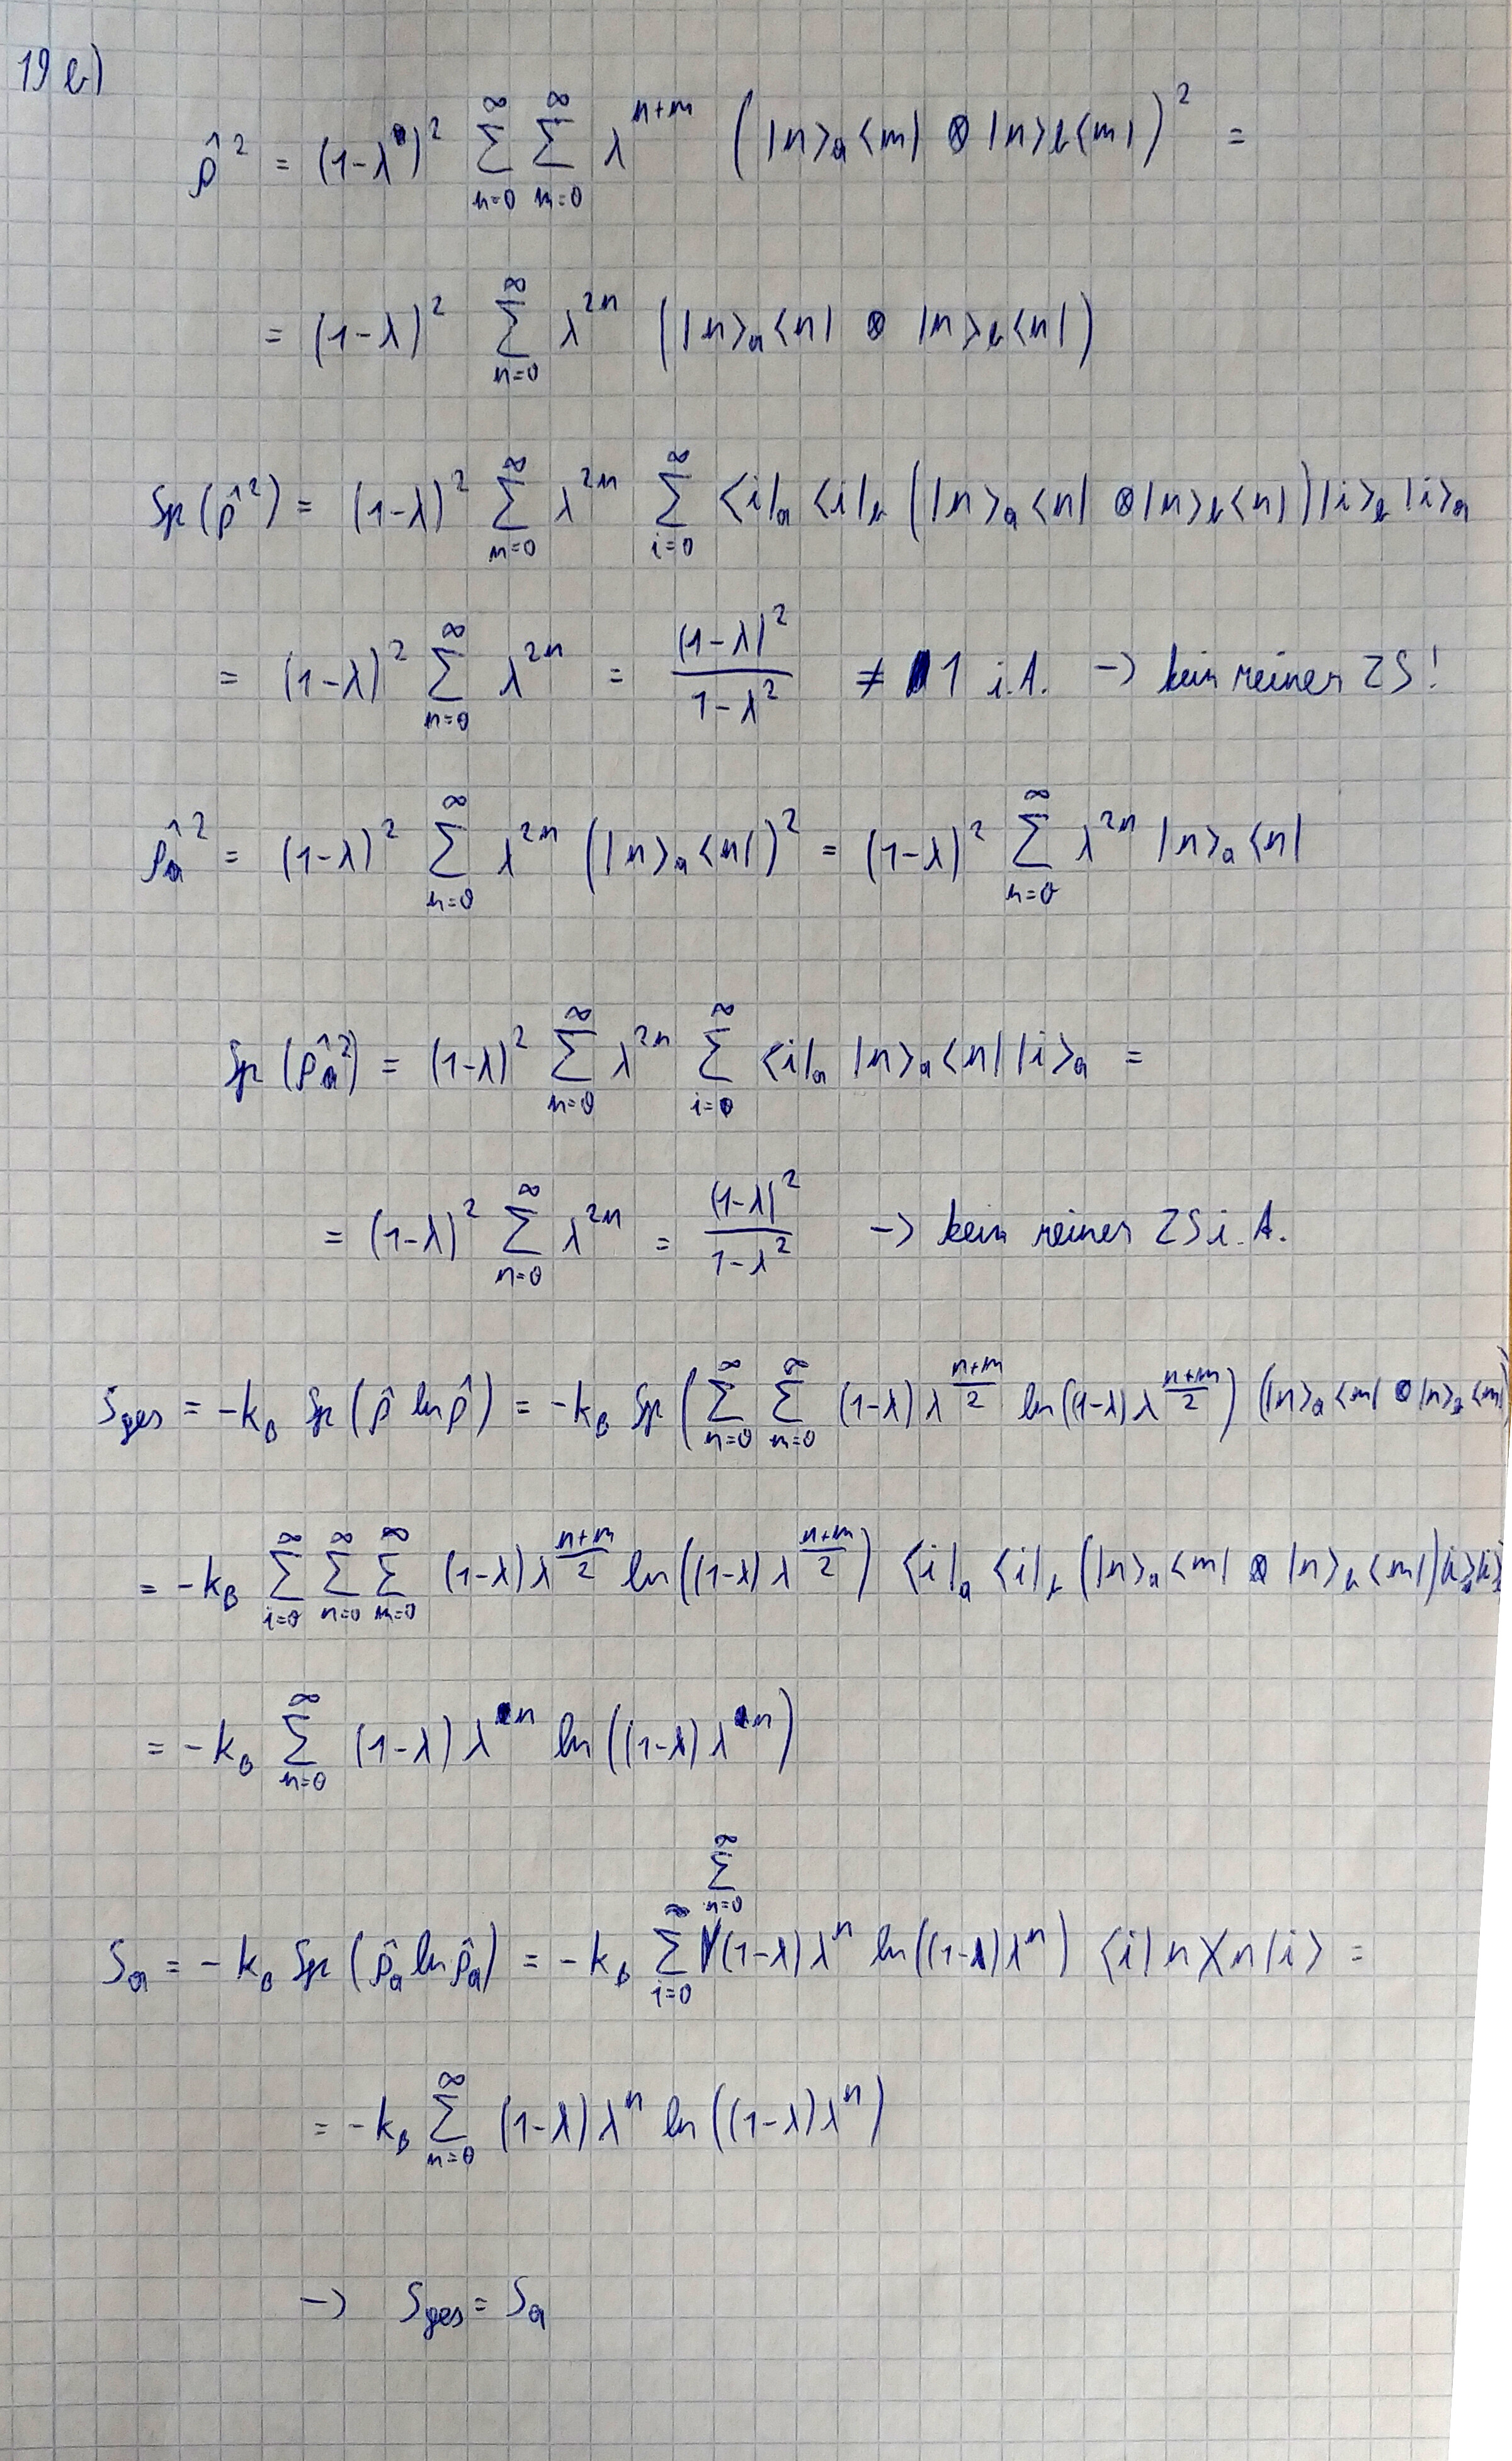 19 b)
ρ̂² = (1-λ)² ∑_{n=0}^∞ ∑_{m=0}^∞ λ^{n+m} (|n>_a<m| ⊗ |n>_b<m|)² =
= (1-λ)² ∑_{n=0}^∞ λ^{2n} (|n>_a<n| ⊗ |n>_b<n|)
Sp(ρ̂²) = (1-λ)² ∑_{n=0}^∞ λ^{2n} ∑_{i=0}^∞ <i|_a <i|_b (|n>_a<n| ⊗ |n>_b<n|) |i>_b |i>_a
= (1-λ)² ∑_{n=0}^∞ λ^{2n} = (1-λ)² / (1-λ²) ≠ 1 i.A. -> kein reiner ZS!
ρ̂_a² = (1-λ)² ∑_{n=0}^∞ λ^{2n} (|n>_a<n|)² = (1-λ)² ∑_{n=0}^∞ λ^{2n} |n>_a<n|
Sp(ρ̂_a²) = (1-λ)² ∑_{n=0}^∞ λ^{2n} ∑_{i=0}^∞ <i|_a |n>_a<n| |i>_a =
= (1-λ)² ∑_{n=0}^∞ λ^{2n} = (1-λ)² / (1-λ²) -> kein reiner ZS i.A.
S_ges = -k_B Sp(ρ̂ ln ρ̂) = -k_B Sp(∑_{n=0}^∞ ∑_{m=0}^∞ (1-λ) λ^{(n+m)/2} ln((1-λ) λ^{(n+m)/2}) (|n>_a<m| ⊗ |n>_b<m|
= -k_B ∑_{i=0}^∞ ∑_{n=0}^∞ ∑_{m=0}^∞ (1-λ) λ^{(n+m)/2} ln((1-λ) λ^{(n+m)/2}) <i|_a <i|_b (|n>_a<m| ⊗ |n>_b<m|) |i>_b |i>
= -k_B ∑_{n=0}^∞ (1-λ) λ^n ln((1-λ) λ^n)
S_a = -k_B Sp(ρ̂_a ln ρ̂_a) = -k_B ∑_{i=0}^∞ ∑_{n=0}^∞ (1-λ) λ^n ln((1-λ) λ^n) <i|n><n|i> =
= -k_B ∑_{n=0}^∞ (1-λ) λ^n ln((1-λ) λ^n)
-> S_ges = S_a